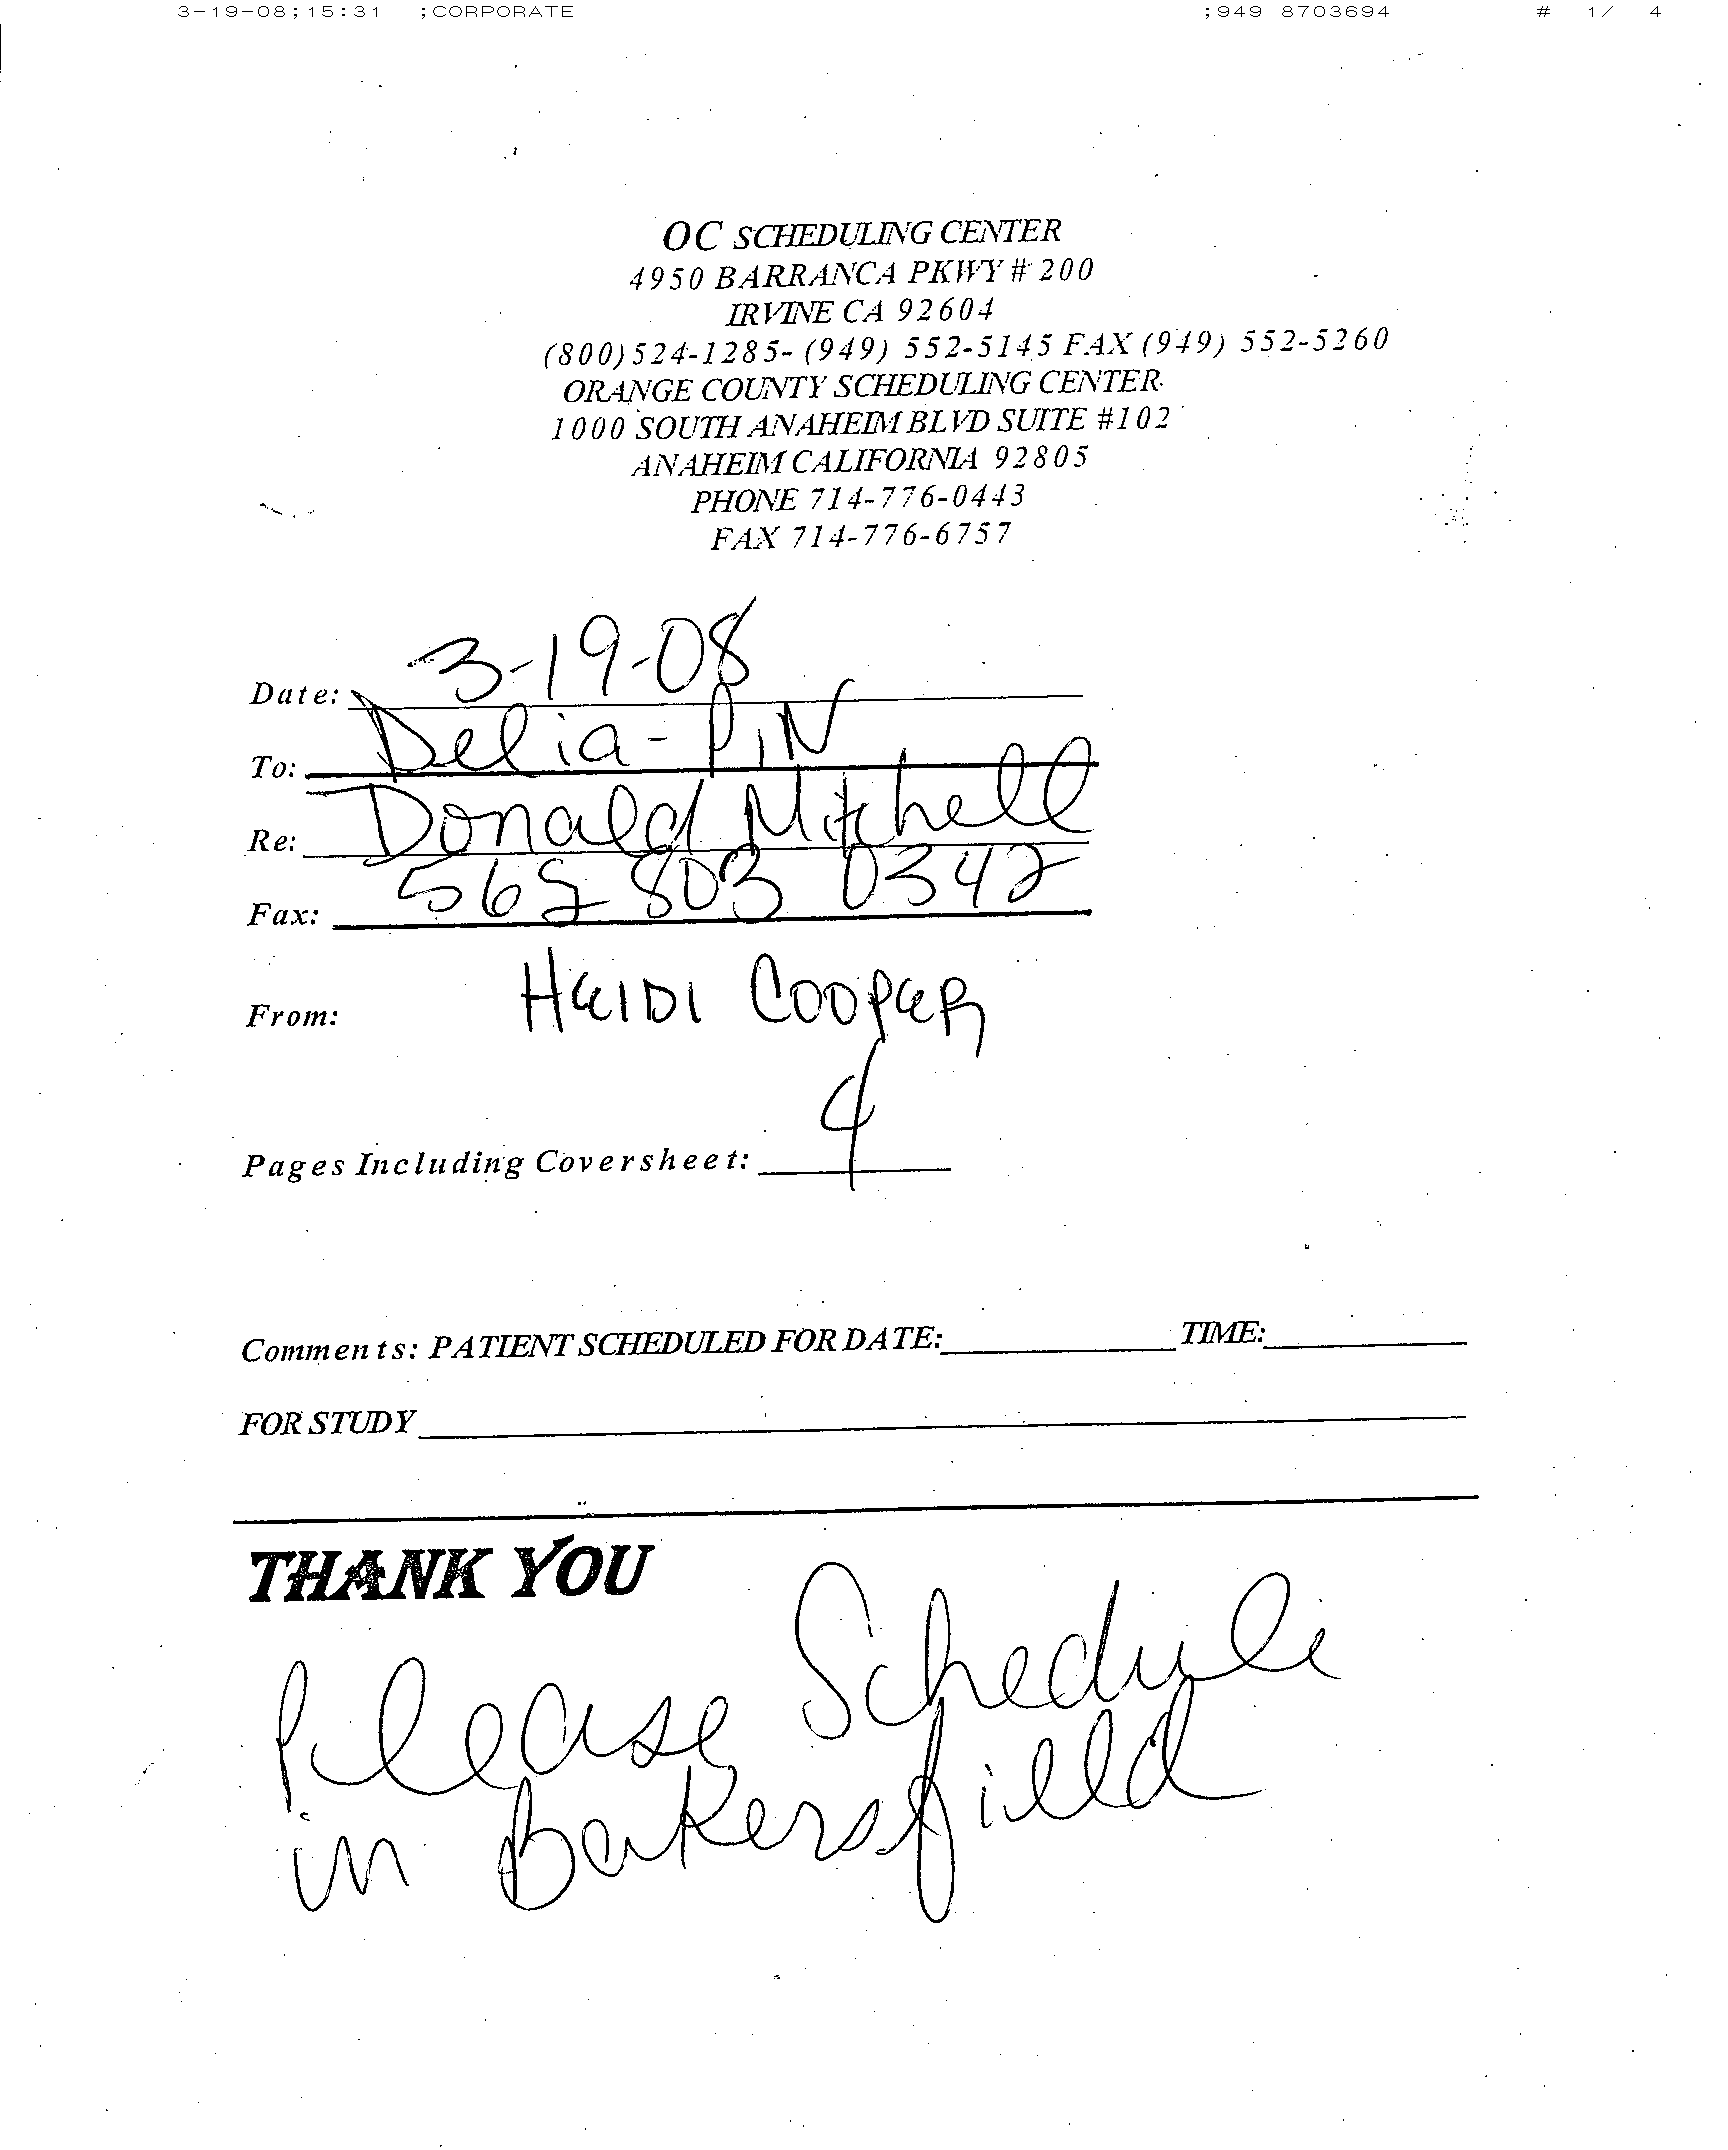 3-19-08;15:31 ;CORPORATE ;949 8703694 # 1/ 4
OC SCHEDULING CENTER
4950 BARRANCA PKWY # 200
IRVINE CA 92604
(800)524-1285- (949) 552-5145 FAX (949) 552-5260
ORANGE COUNTY SCHEDULING CENTER
1000 SOUTH ANAHEIM BLVD SUITE #102
ANAHEIM CALIFORNIA 92805
PHONE 714-776-0443
FAX 714-776-6757
Date: 3-19-08
To: Delia - PIN
Re: Donald Mitchell
Fax: 562 803 0342
From: HEIDI COOPER
Pages Including Coversheet: 4
Comments: PATIENT SCHEDULED FOR DATE: TIME:
FOR STUDY
THANK YOU
Please Schedule
in Bakersfield